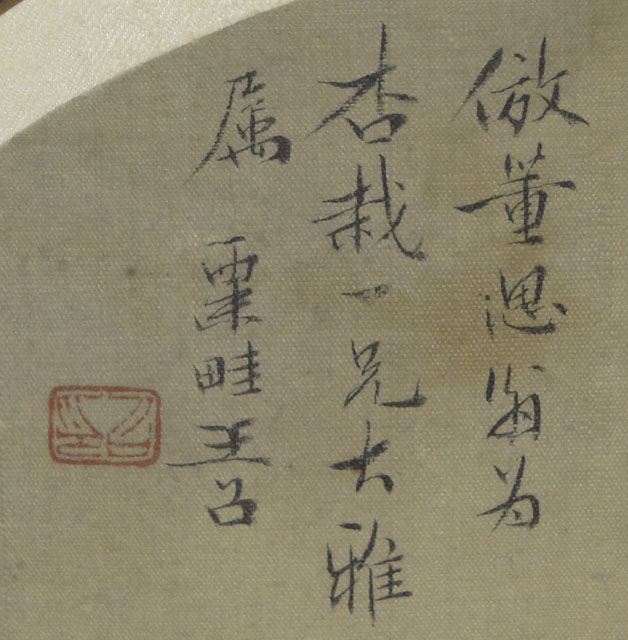 倣董思翁为
杏栽一兄大雅
属 栗畦王